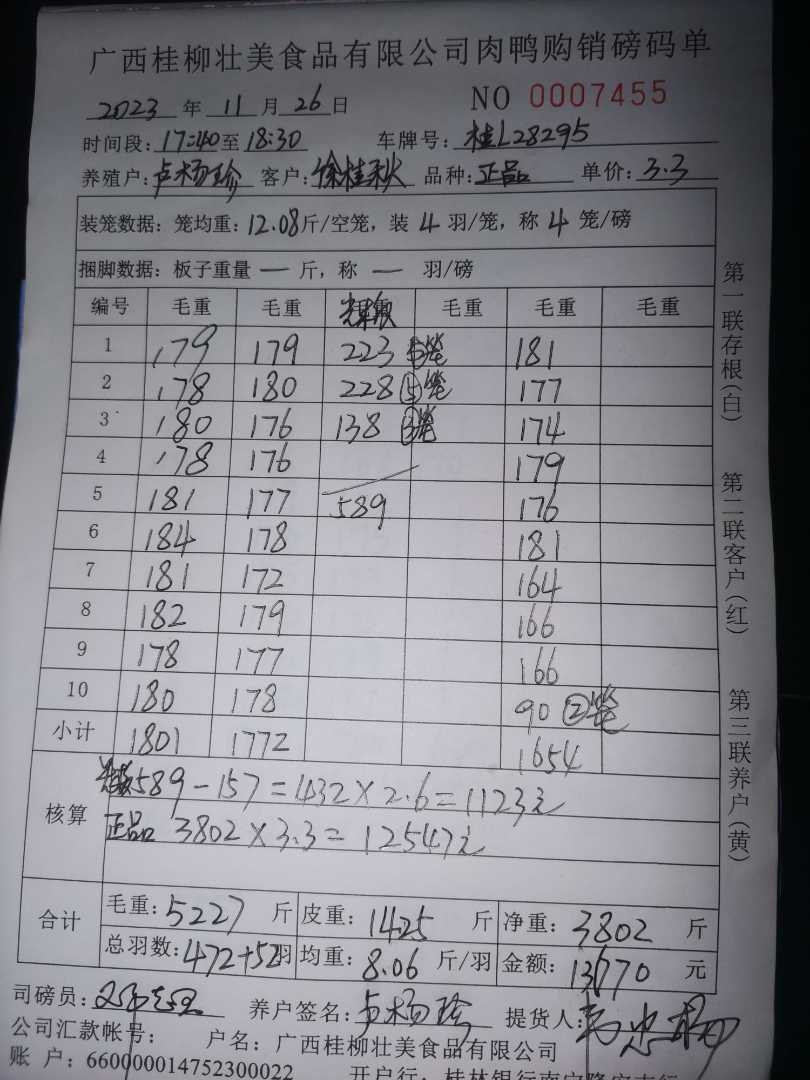 广西桂柳壮美食品有限公司肉鸭购销磅码单
2023年11月26日 NO 0007455
时间段:17:40至18:30 车牌号:桂L28295
养殖户:卢杨珍 客户:徐桂秋 品种:正品 单价:3.3
装笼数据:笼均重:12.08斤/空笼,装4羽/笼,称4笼/磅
捆脚数据:板子重量一斤,称一羽/磅
编号 毛重 毛重 毛重 毛重 毛重
1 179 179 223 ⑤笼 181
2 178 180 228 ⑤笼 177
3 180 176 138 ③笼 174
4 178 176 179
5 181 177 589 176
6 184 178 181
7 181 172 164
8 182 179 166
9 178 177 166
10 180 178 90 ②笼
小计 1801 1772 1654
核算
589-157=432×2.6=1123元
正品 3802×3.3=12547元
合计
毛重:5227斤 皮重:1425斤 净重:3802斤
总羽数:472+52羽 均重:8.06斤/羽 金额:13670元
司磅员: 养户签名:卢杨珍 提货人:
公司汇款帐号: 户名:广西桂柳壮美食品有限公司
账户:660000014752300022 开户行:桂林银行南宁隆安支行
第一联存根(白)
第二联客户(红)
第三联养户(黄)